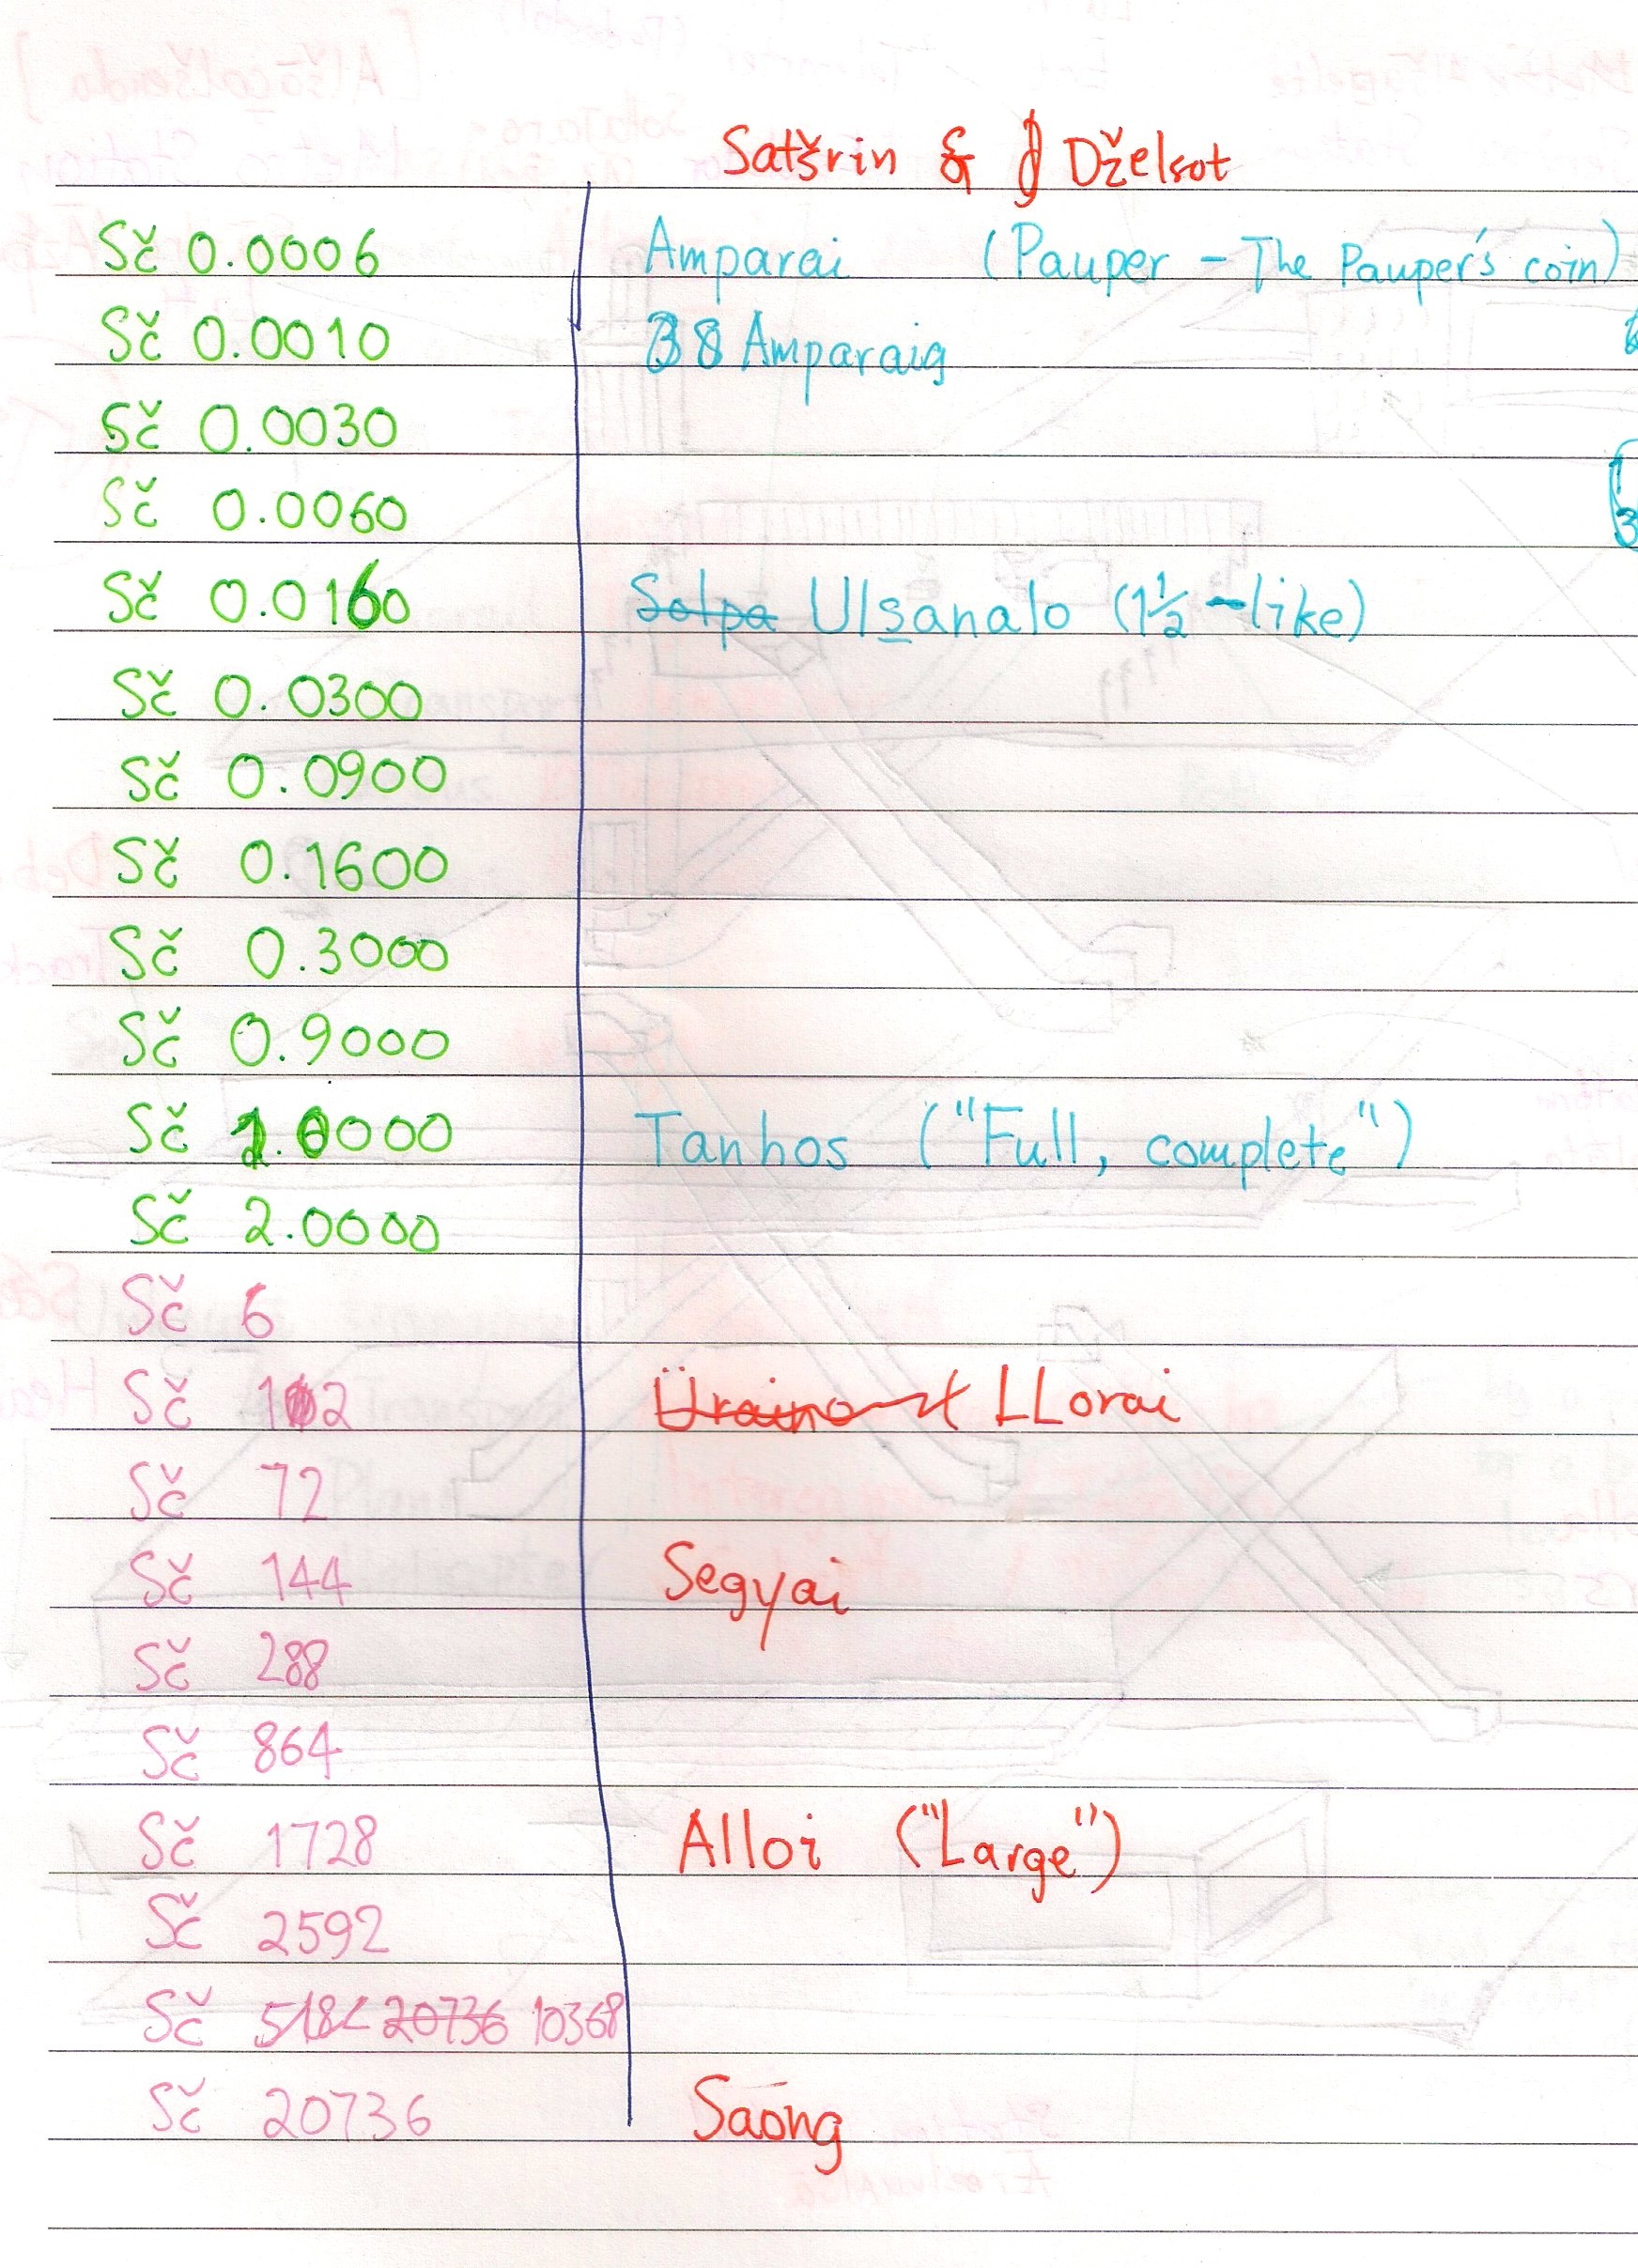 Satšrin & Dželsot
Sč 0.0006 Amparai (Pauper - The Pauper's coin)
Sč 0.0010 38 Amparaig
Sč 0.0030
Sč 0.0060
Sč 0.0160 Solpa Ulsanalo (1½-like)
Sč 0.0300
Sč 0.0900
Sč 0.1600
Sč 0.3000
Sč 0.9000
Sč 1.0000 Tanhos ("Full, complete")
Sč 2.0000
Sč 6
Sč 12 Üraino LLorai
Sč 72
Sč 144 Segyai
Sč 288
Sč 864
Sč 1728 Alloi ("Large")
Sč 2592
Sč 518 20736 10368
Sč 20736 Saōng